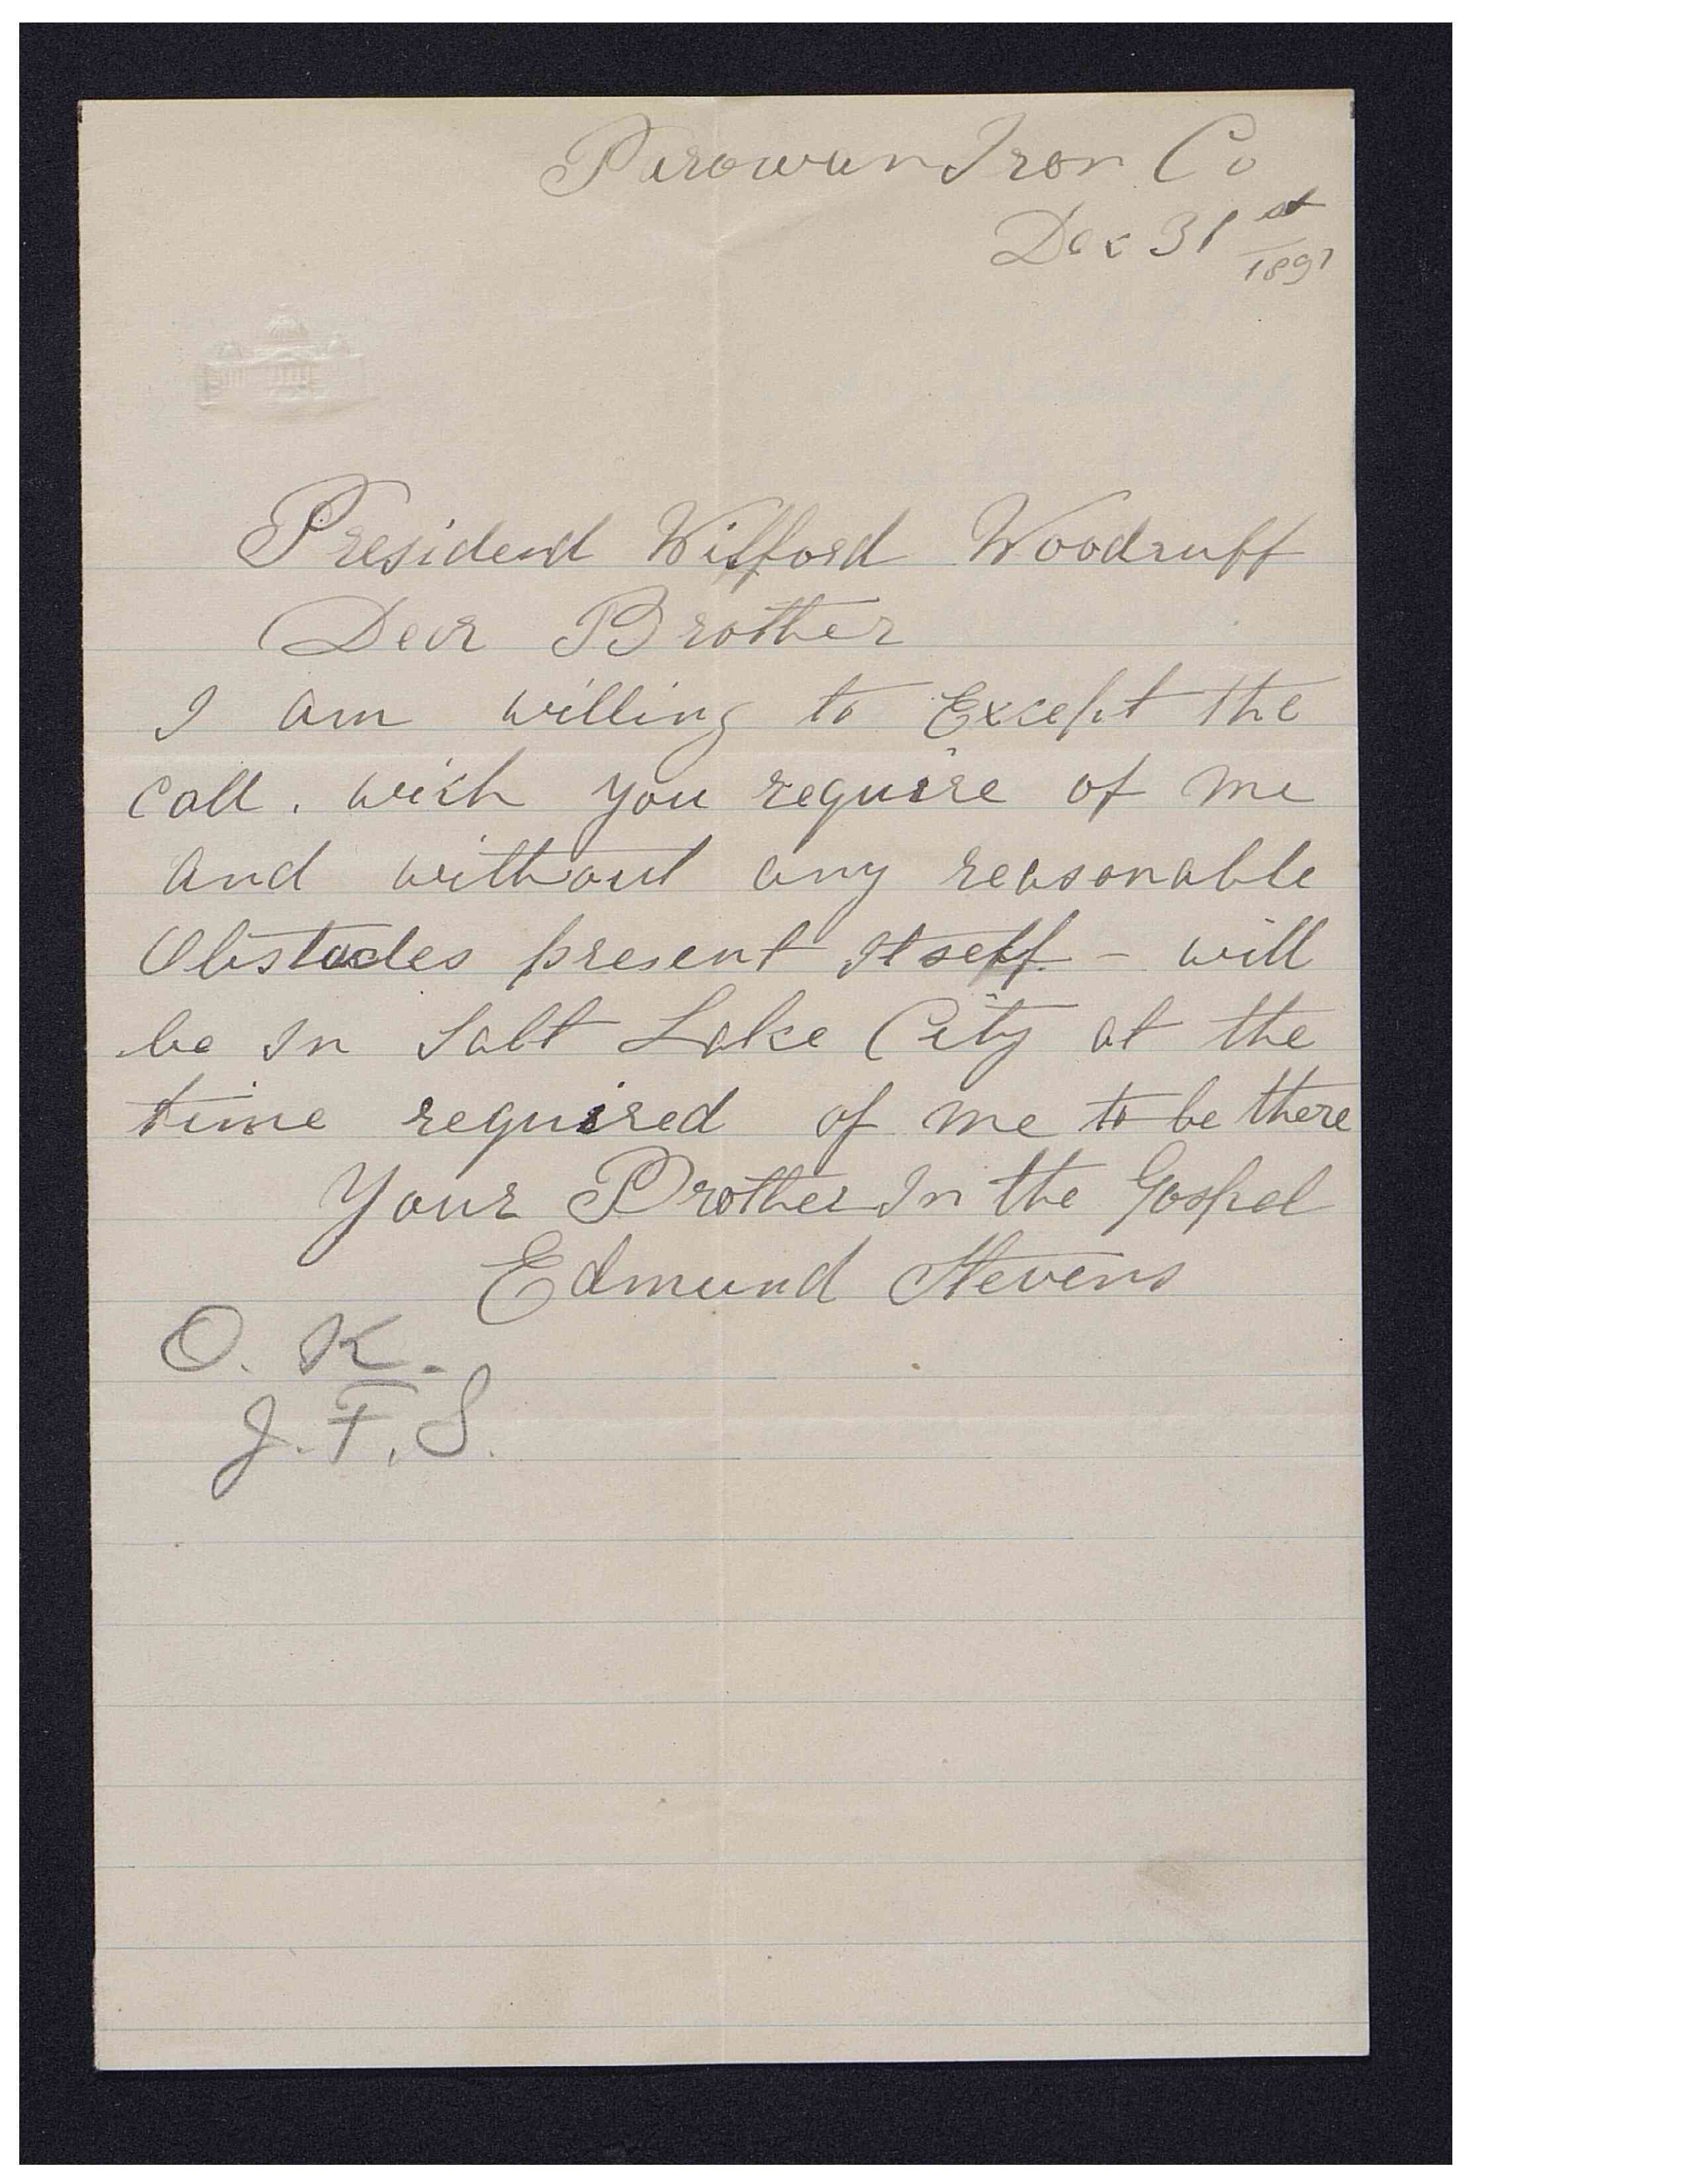 Parowan Iron Co
Dec 31st
1891
President Wilford Woodruff
Dear Brother
I am willing to Except the
call. wich you require of me
and without any reasonable
Obstacles present Itself - will
be In Salt Lake City at the
time required of me to be there
Your Brother In the Gospel
Edmund Stevens
O. K.
J. F. S.